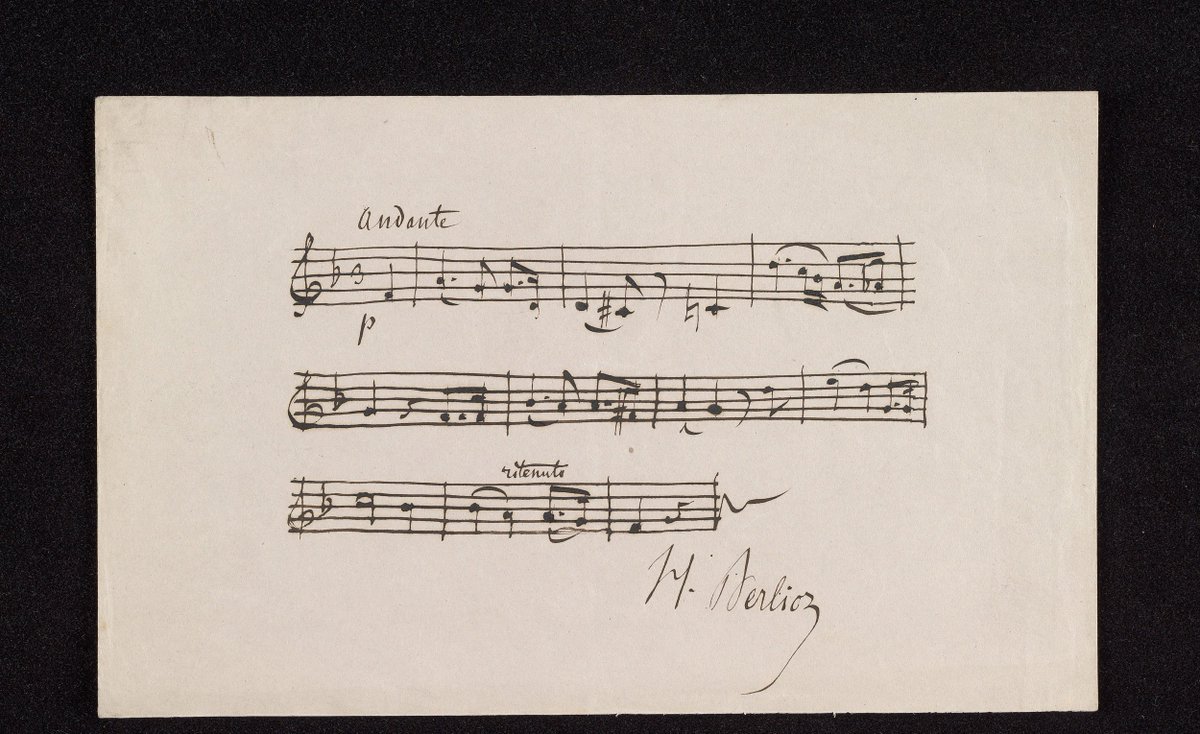 Andante
3
p
ritenuto
H. Berlioz